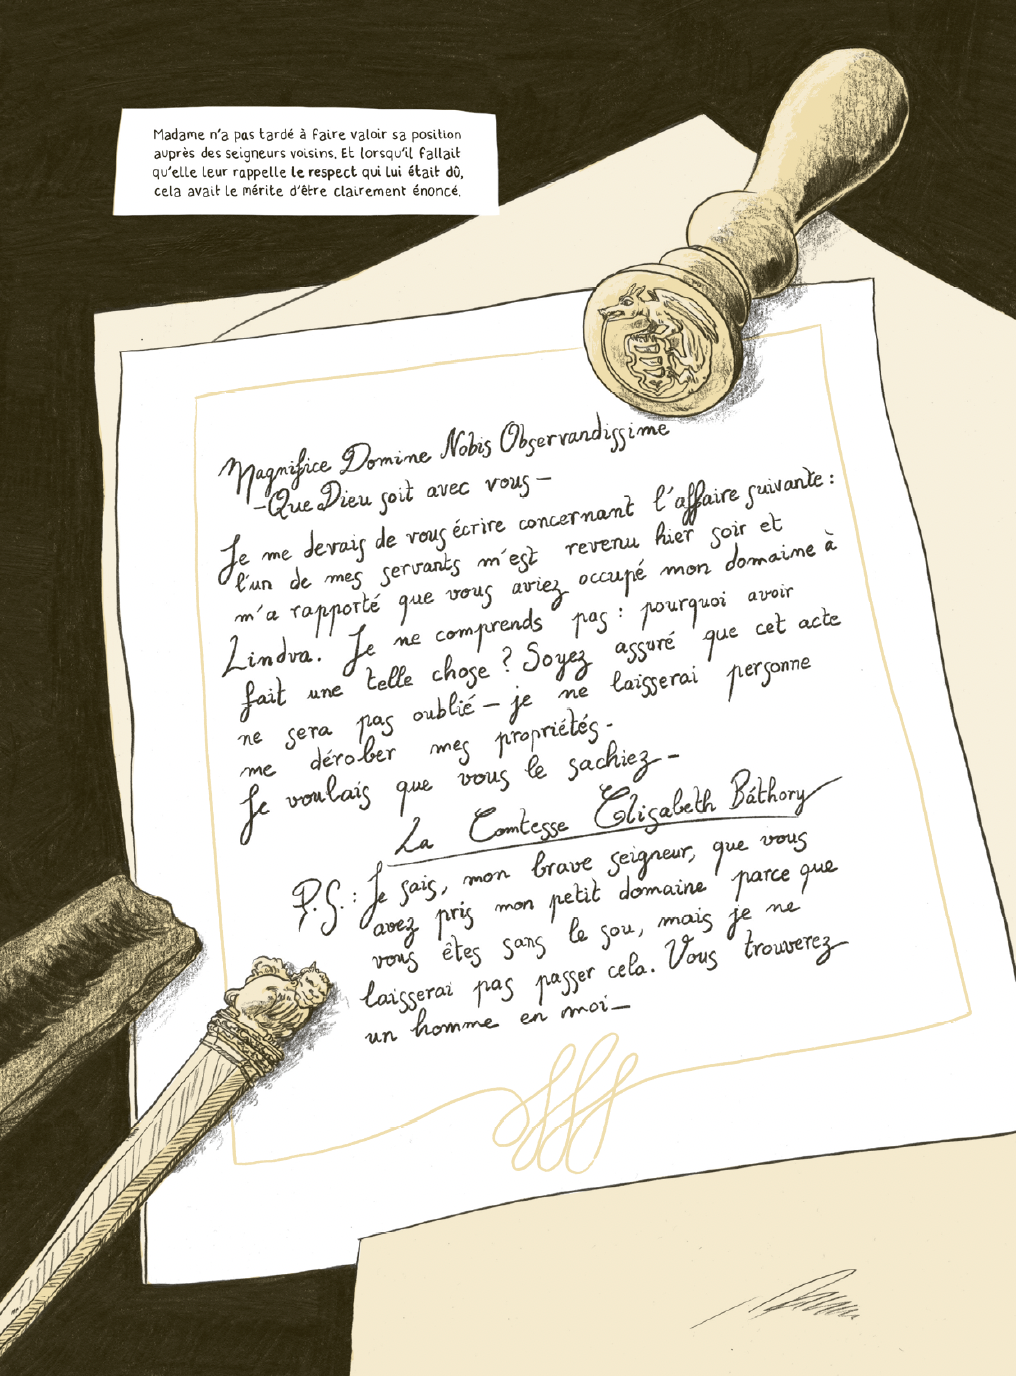 Madame n'a pas tardé à faire valoir sa position
auprès des seigneurs voisins. Et lorsqu'il fallait
qu'elle leur rappelle le respect qui lui était dû,
cela avait le mérite d'être clairement énoncé.
Magnifice Domine Nobis Observandissime
-Que Dieu soit avec vous-
Je me devais de vous écrire concernant l'affaire suivante :
l'un de mes servants m'est revenu hier soir et
m'a rapporté que vous aviez occupé mon domaine à
Lindva. Je ne comprends pas : pourquoi avoir
fait une telle chose ? Soyez assuré que cet acte
ne sera pas oublié - je ne laisserai personne
me dérober mes propriétés.
Je voulais que vous le sachiez -
La Comtesse Elisabeth Báthory
P.S. : Je sais, mon brave seigneur, que vous
avez pris mon petit domaine parce que
vous êtes sans le sou, mais je ne
laisserai pas passer cela. Vous trouverez
un homme en moi-